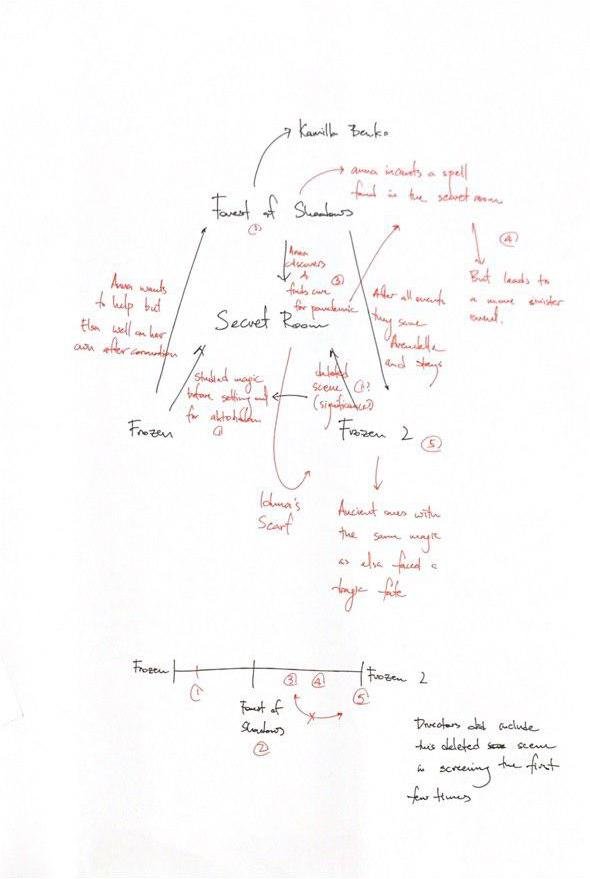 Kamilla Benko
anna incants a spell
found in the secret room
Forest of Shadows
②
Anna
discovers
&
finds cure
for pandemic
③
④
But leads to
a more sinister
event.
Anna wants
to help but
Elsa well on her
own after coronation
After all events
they save
Arendelle
and stays
Secret Room
studied magic
before setting out
for
①
deleted
scene
(significance?)
Frozen
Frozen 2
⑤
Iduna's
Scarf
Ancient ones with
the same magic
as elsa faced a
tragic fate
Frozen
Frozen 2
①
③
④
⑤
Forest of
Shadows
②
Directors did include
this deleted scene
in screening the first
few times